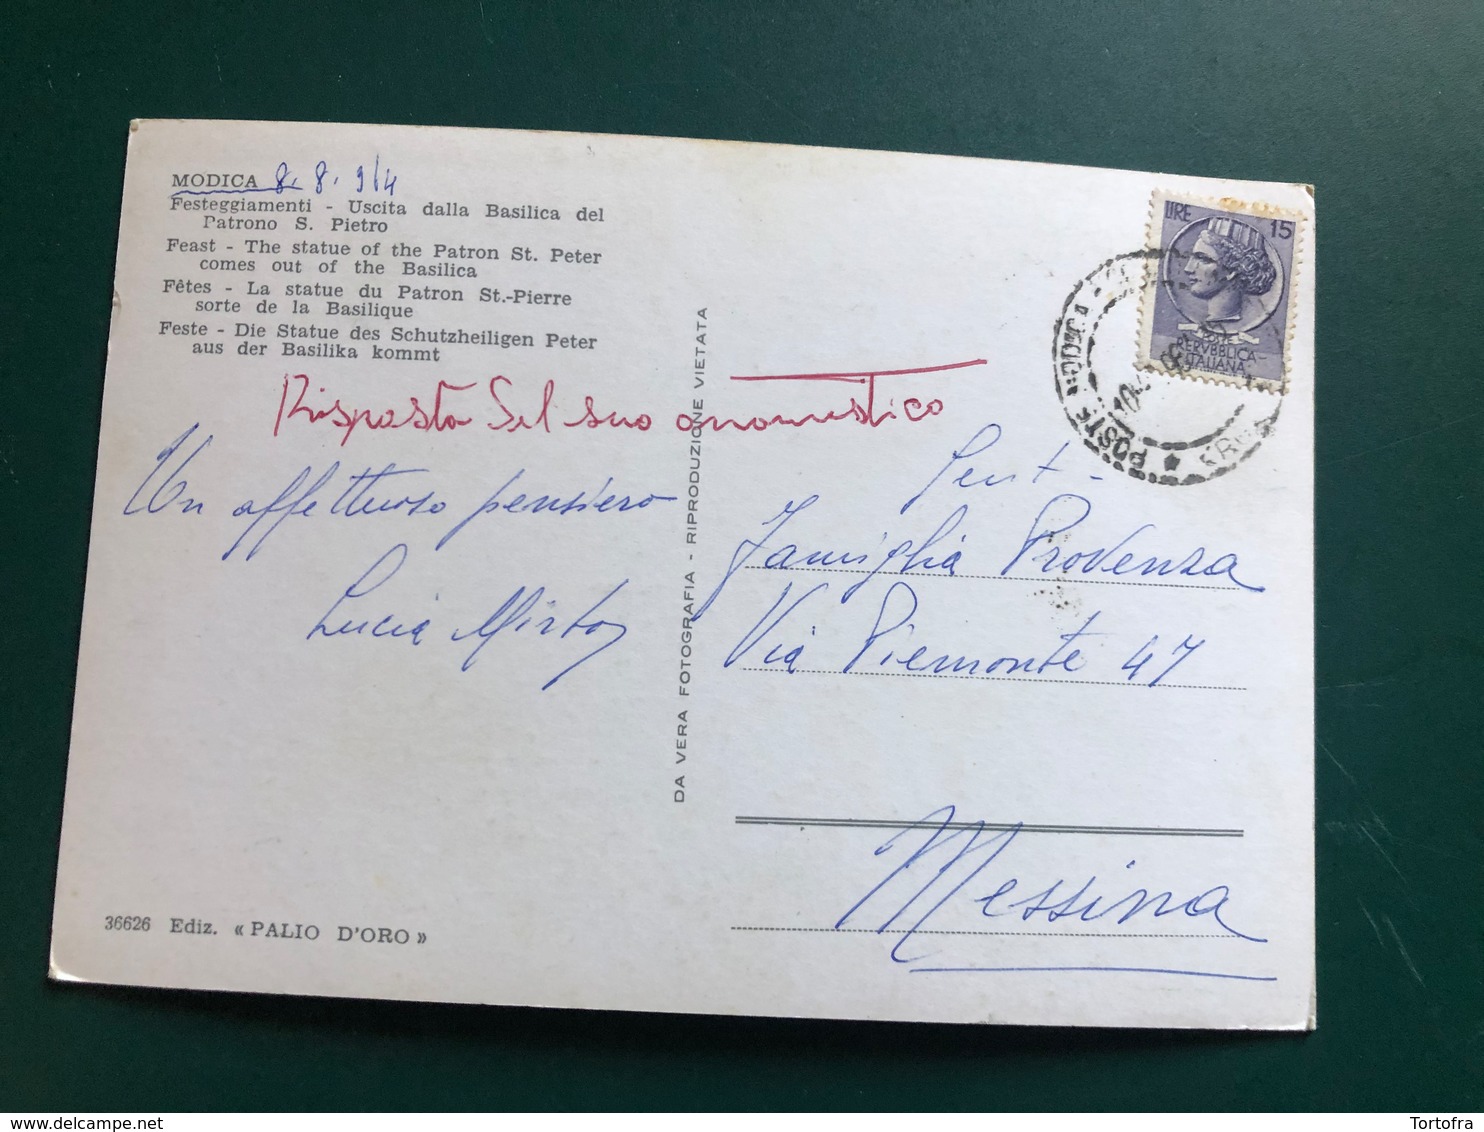 MODICA 8. 8. 9/4
Festeggiamenti - Uscita dalla Basilica del
Patrono S. Pietro
Feast - The statue of the Patron St. Peter
comes out of the Basilica
Fêtes - La statue du Patron St.-Pierre
sorte de la Basilique
Feste - Die Statue des Schutzheiligen Peter
aus der Basilika kommt
Risposta Sel suo onomastico
Un affettuoso pensiero
Lucia Mirto
36626 Ediz. « PALIO D'ORO »
DA VERA FOTOGRAFIA - RIPRODUZIONE VIETATA
LIRE 15
POSTE
REPVBBLICA
ITALIANA
POSTE MODICA
Gent.
Famiglia Provenza
Via Piemonte 47
Messina
www.delcampe.net
Tortofra